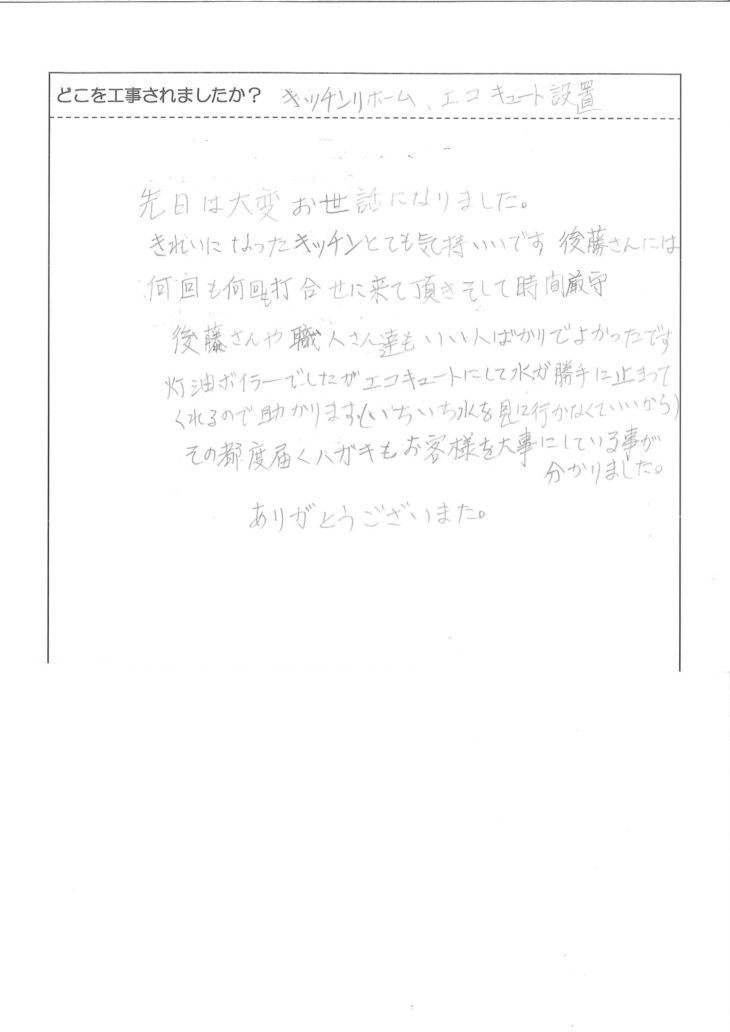 どこを工事されましたか? キッチンリホーム、エコキュート設置
先日は大変お世話になりました。
きれいになったキッチンとても気持いいです 後藤さんには
何回も何回も打合せに来て頂きそして時間厳守
後藤さんや職人さん達もいい人ばかりでよかったです
灯油ボイラーでしたがエコキュートにして水が勝手に止まって
くれるので助かります(いちいち水を見に行かなくていいから)
その都度届くハガキもお客様を大事にしている事が
分かりました。
ありがとうございまた。